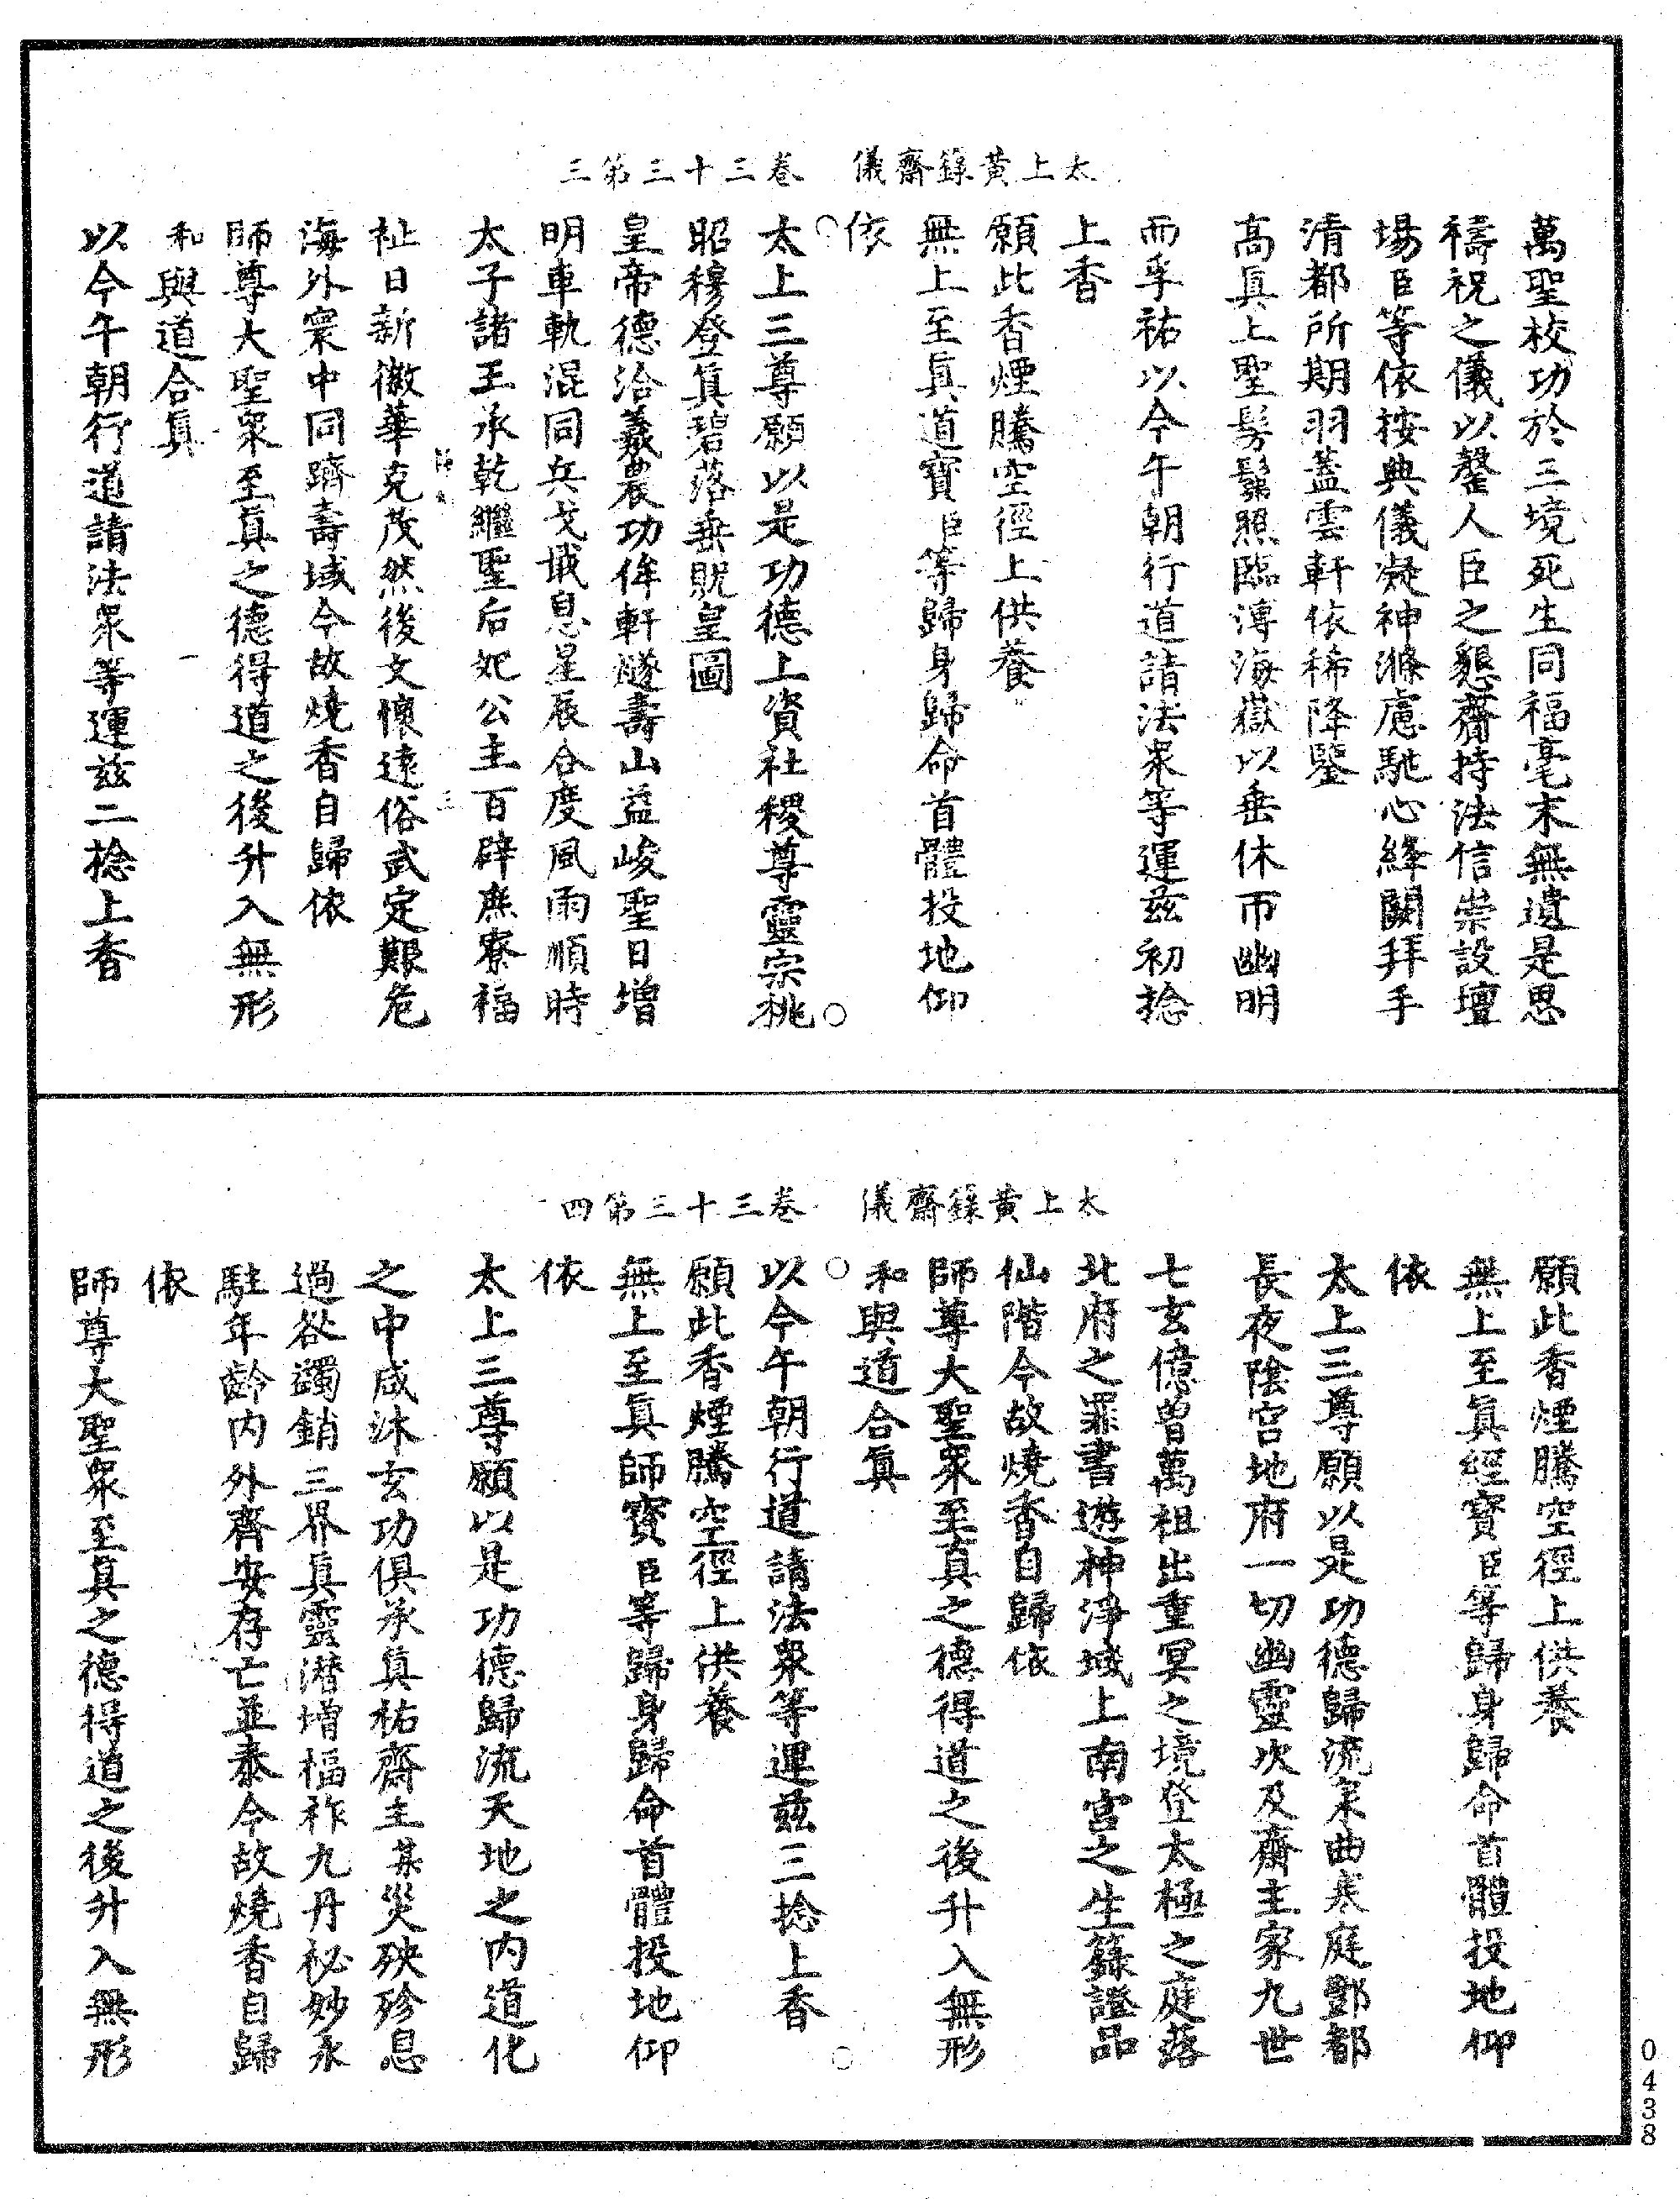 太上黃籙齋儀　卷三十三第三
萬聖校功於三境死生同福毫末無遺是思
禱祝之儀以罄人臣之懇齋持法信崇設壇
場臣等依按典儀凝神滌慮馳心絳闕拜手
清都所期羽蓋雲軒依稀降鑒
高眞上聖髣髴照臨溥海嶽以垂休帀幽明
而孚祐以今午朝行道請法衆等運茲初捻
上香
願此香煙騰空徑上供養
無上至眞道寶臣等歸身歸命首體投地仰
依
太上三尊願以是功德上資社稷尊靈宗祧
昭穆登眞碧落垂貺皇圖
皇帝德洽羲農功侔軒燧壽山益峻聖日增
明車軌混同兵戈戢息星辰合度風雨順時
太子諸王承乾繼聖后妃公主百辟庶寮福
祉日新徽華克茂然後文懷遠俗武定艱危
海外寰中同躋壽域今故燒香自歸依
師尊大聖衆至眞之德得道之後升入無形
和與道合眞
以今午朝行道請法衆等運茲二捻上香
太上黃籙齋儀　卷三十三第四
願此香煙騰空徑上供養
無上至眞經寶臣等歸身歸命首體投地仰
依
太上三尊願以是功德歸流泉曲寒庭酆都
長夜陰宮地府一切幽靈次及齋主家九世
七玄億曾萬祖出重冥之境登太極之庭落
北府之罪書遊神淨域上南宮之生籙證品
仙階今故燒香自歸依
師尊大聖衆至真之德得道之後升入無形
和與道合眞
以今午朝行道請法衆等運茲三捻上香
願此香煙騰空徑上供養
無上至眞師寶臣等歸身歸命首體投地仰
依
太上三尊願以是功德歸流天地之內道化
之中咸沐玄功俱承眞祐齋主某災殃殄息
過咎蠲銷三界眞靈潜增福祚九丹祕妙永
駐年齡內外齊安存亡並泰今故燒香自歸
依
師尊大聖衆至眞之德得道之後升入無形
0438